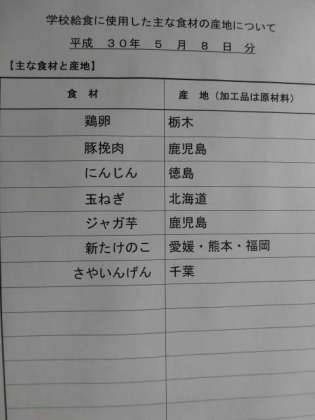 学校給食に使用した主な食材の産地について
平成 30年 5 月 8 日 分
【主な食材と産地】
食 材 産 地（加工品は原材料）
鶏卵 栃木
豚挽肉 鹿児島
にんじん 徳島
玉ねぎ 北海道
ジャガ芋 鹿児島
新たけのこ 愛媛・熊本・福岡
さやいんげん 千葉